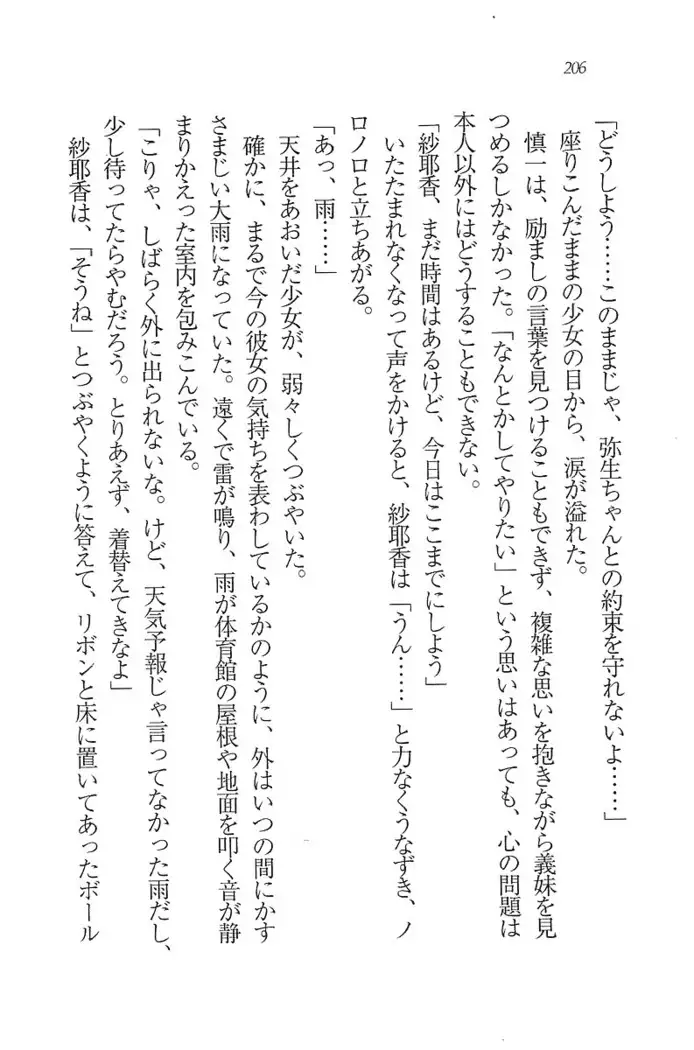 206
「どうしよう……このままじゃ、弥生ちゃんとの約束を守れないよ……」
座りこんだままの少女の目から、涙が溢れた。
慎一は、励ましの言葉を見つけることもできず、複雑な思いを抱きながら義妹を見
つめるしかなかった。「なんとかしてやりたい」という思いはあっても、心の問題は
本人以外にはどうすることもできない。
「紗耶香、まだ時間はあるけど、今日はここまでにしよう」
いたたまれなくなって声をかけると、紗耶香は「うん……」と力なくうなずき、ノ
ロノロと立ちあがる。
「あっ、雨……」
天井をあおいだ少女が、弱々しくつぶやいた。
確かに、まるで今の彼女の気持ちを表わしているかのように、外はいつの間にかす
さまじい大雨になっていた。遠くで雷が鳴り、雨が体育館の屋根や地面を叩く音が静
まりかえった室内を包みこんでいる。
「こりゃ、しばらく外に出られないな。けど、天気予報じゃ言ってなかった雨だし、
少し待ってたらやむだろう。とりあえず、着替えてきなよ」
紗耶香は、「そうね」とつぶやくように答えて、リボンと床に置いてあったボール